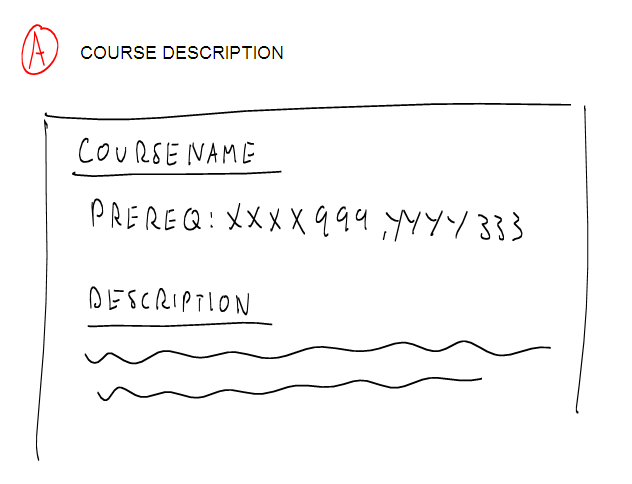 A COURSE DESCRIPTION
COURSE NAME
PREREQ: XXXX999, YYYY333
DESCRIPTION